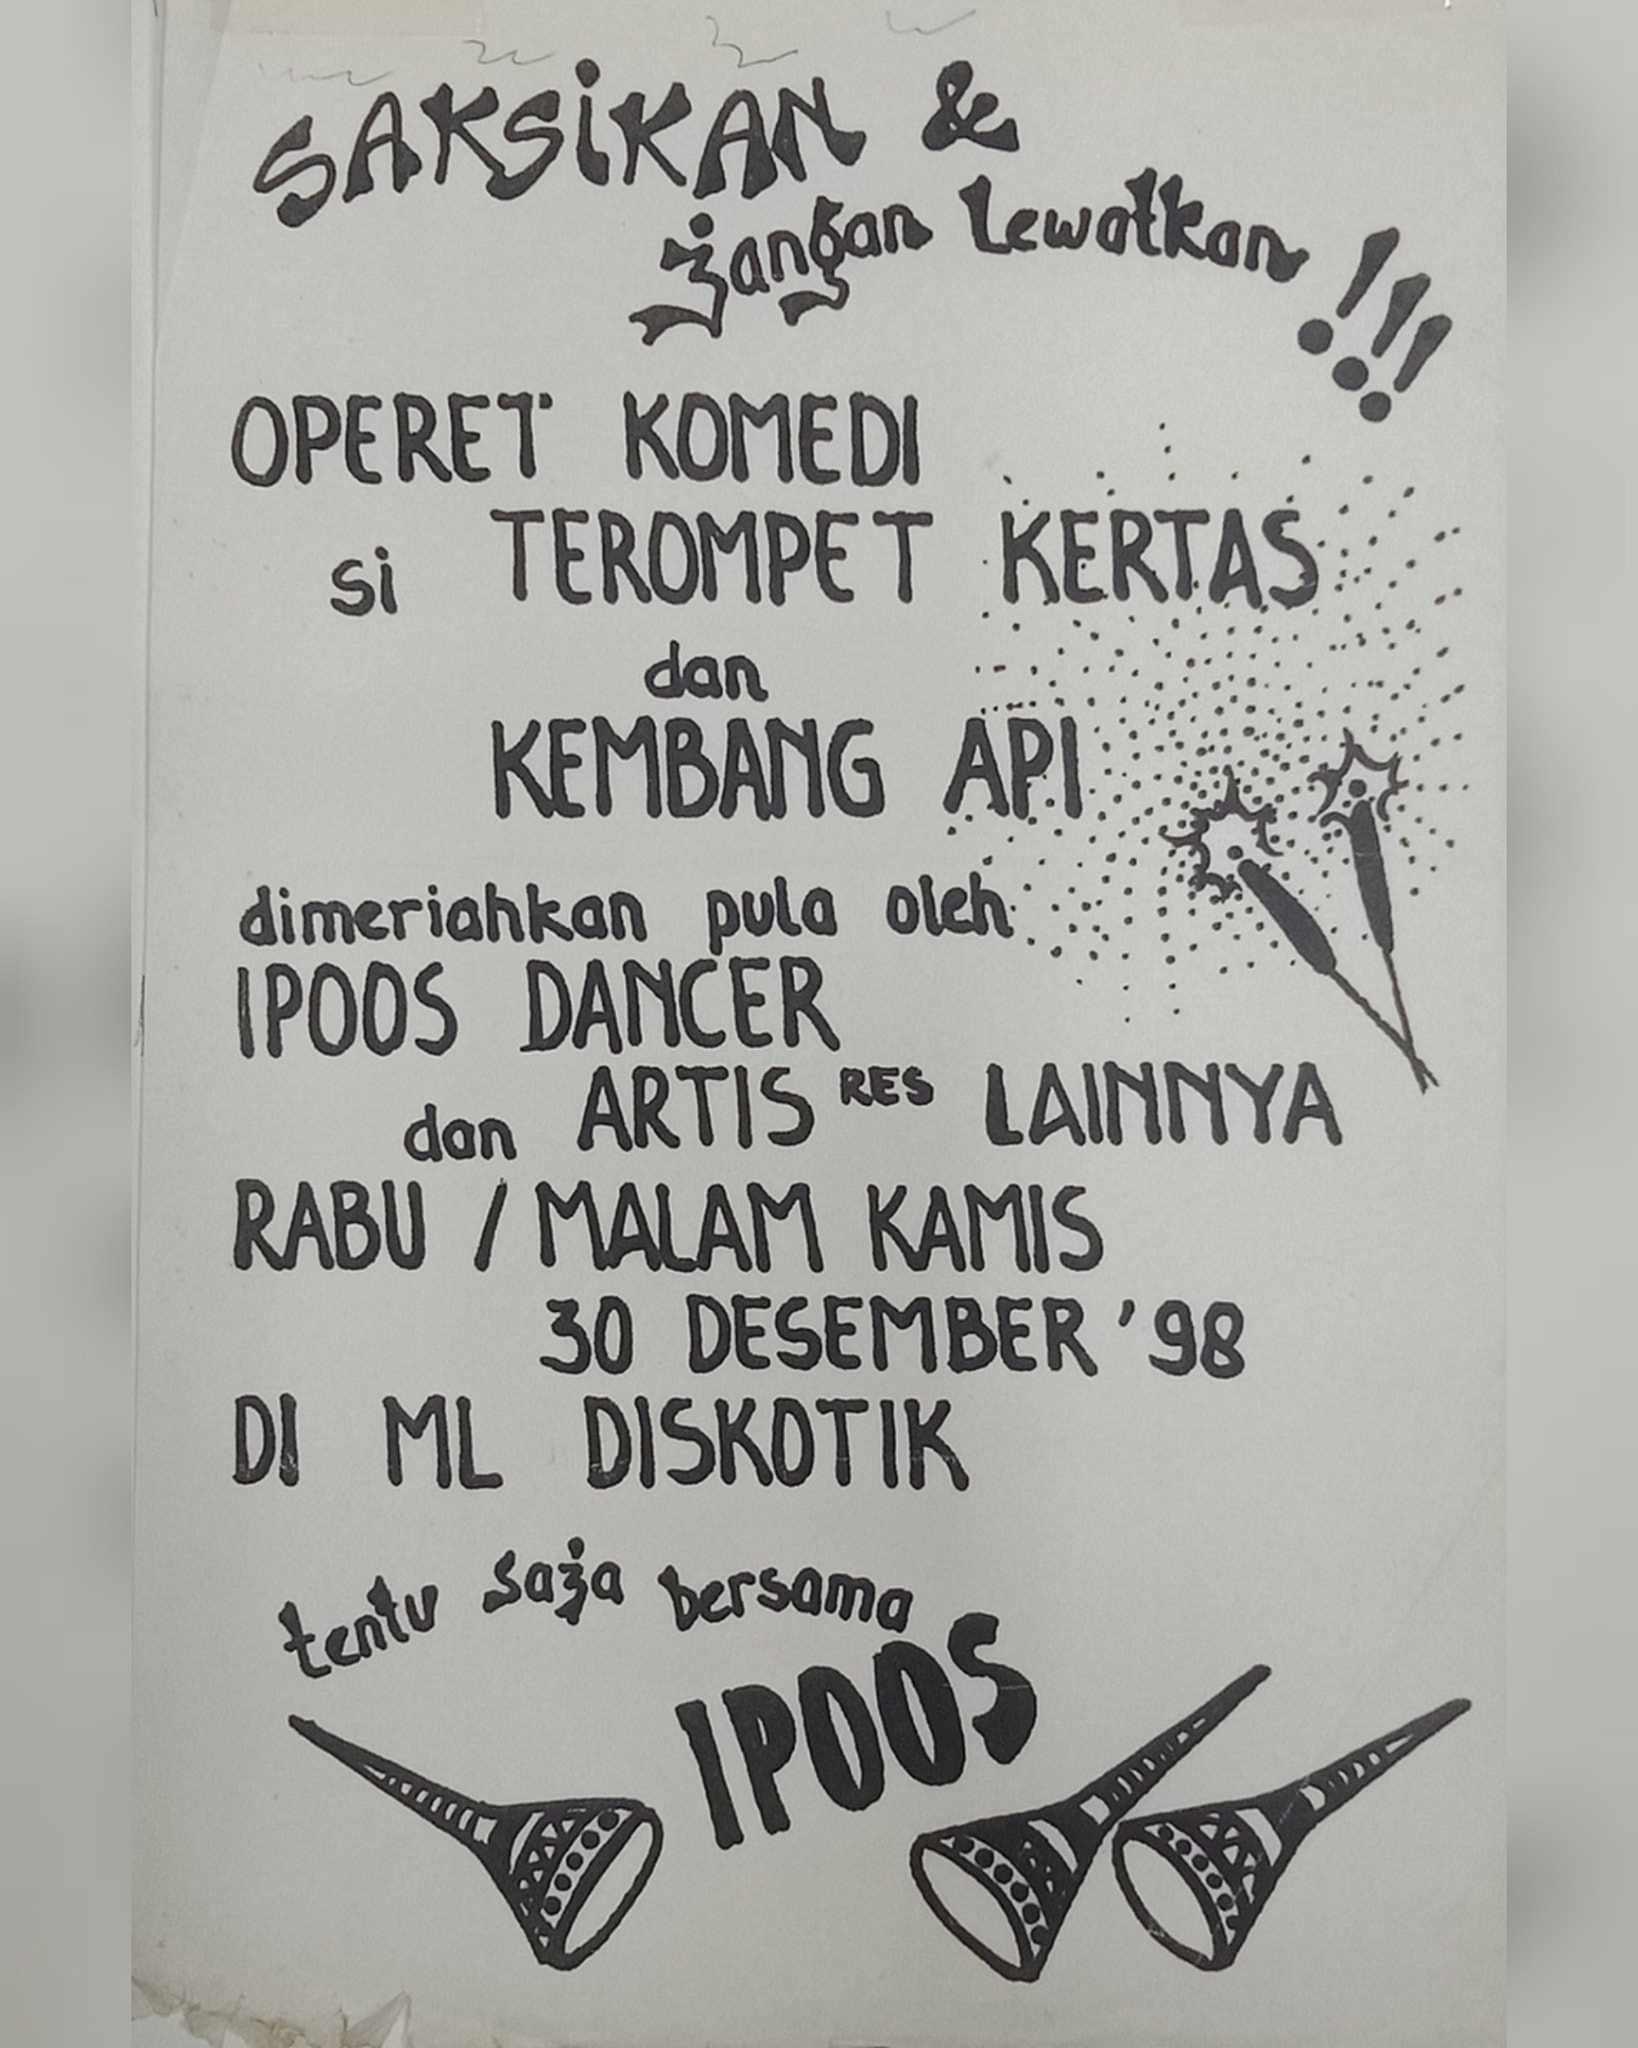 SAKSiKAN &
jangan Lewatkan !!!
OPERET KOMEDI
si TEROMPET KERTAS
dan
KEMBANG API
dimeriahkan pula oleh
IPOOS DANCER
dan ARTIS RES LAINNYA
RABU / MALAM KAMIS
30 DESEMBER '98
DI ML DISKOTIK
tentu saja bersama
IPOOS